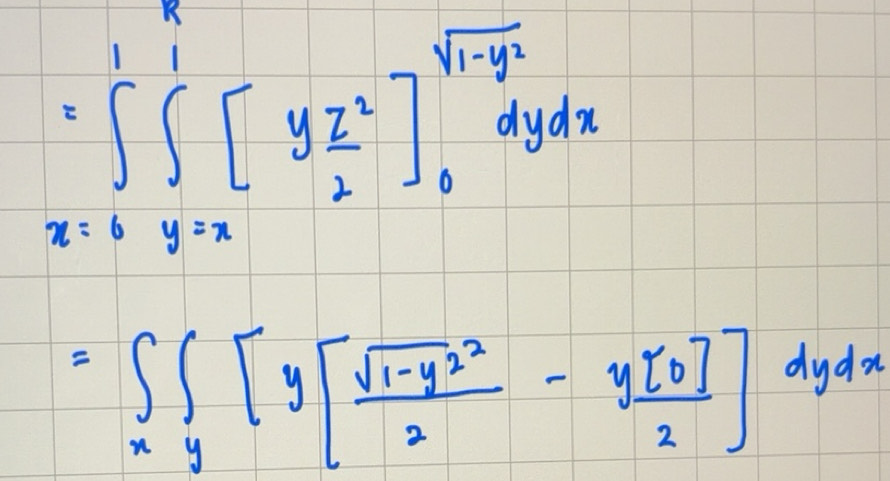 R
= ∫_{x=0}^{1} ∫_{y=x}^{1} [ y z²/2 ]_{0}^{√(1-y²)} dydx
= ∫_{x} ∫_{y} [ y [ √(1-y²)²/2 - y[0]/2 ] dydx